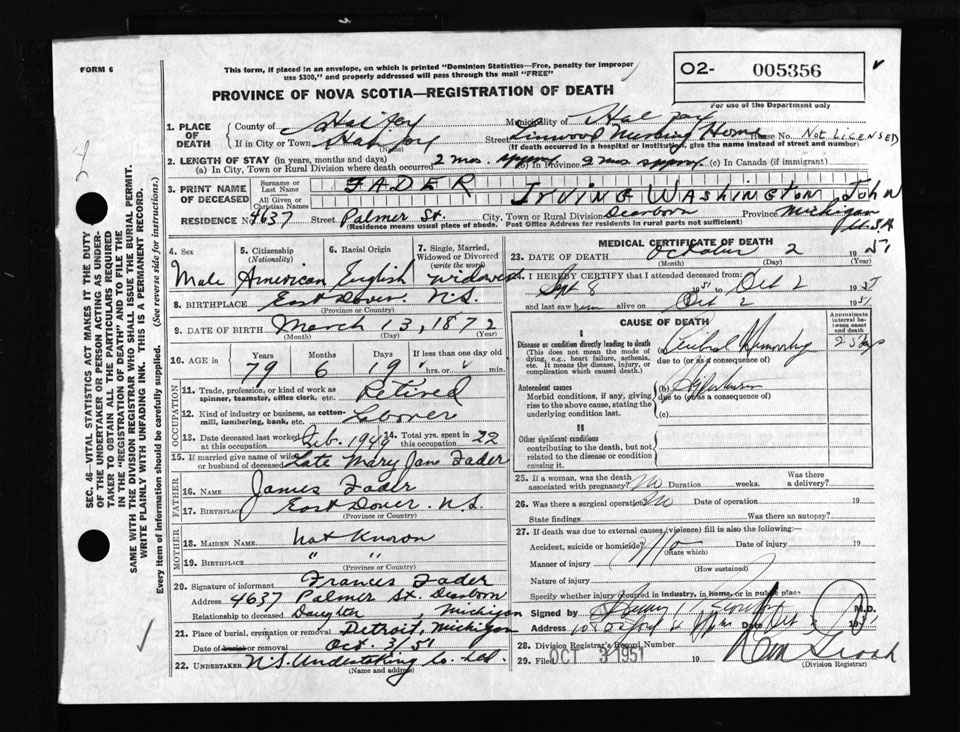 FORM 6
This form, if placed in an envelope, on which is printed "Dominion Statistics—Free, penalty for improper
use $300," and properly addressed will pass through the mail "FREE"
O2- 005356
For use of the Department only
PROVINCE OF NOVA SCOTIA—REGISTRATION OF DEATH
1. PLACE OF DEATH
County of Halifax Municipality of
If in City or Town Halifax (Name) Street Linwood Nursing Home House No. NOT LICENSED
(If death occurred in a hospital or institution, give the name instead of street and number)
2. LENGTH OF STAY (in years, months and days)
(a) In City, Town or Rural Division where death occurred 2 mos. approx (b) In Province 2 mos approx. (c) In Canada (if immigrant)
3. PRINT NAME OF DECEASED
Surname or Last Name FADER
All Given or Christian Names IRVING WASHINGTON JOHN
RESIDENCE No. 4637 Street Palmer St. City, Town or Rural Division Dearborn Province Michigan U.S.A
(Residence means usual place of abode. Post Office Address for residents in rural parts not sufficient)
4. Sex Male
5. Citizenship (Nationality) American
6. Racial Origin English
7. Single, Married, Widowed or Divorced (write the word) widowed
8. BIRTHPLACE East Dover. N.S.
(Province or Country)
9. DATE OF BIRTH March 13, 1872
(Month) (Day) (Year)
10. AGE in Years 79 Months 6 Days 19 If less than one day old hrs. or min.
OCCUPATION
11. Trade, profession, or kind of work as spinner, teamster, office clerk, etc. Retired
12. Kind of industry or business, as cotton-mill, lumbering, bank, etc. Laborer
13. Date deceased last worked at this occupation Feb. 1949 14. Total yrs. spent in this occupation 22
15. If married give name of wife or husband of deceased Late Mary Jane Fader
FATHER
16. NAME James Fader
17. BIRTHPLACE East Dover. N.S.
(Province or Country)
MOTHER
18. MAIDEN NAME Not Known
19. BIRTHPLACE " "
(Province or Country)
20. Signature of informant Frances Fader
Address 4637 Palmer St. Dearborn
Relationship to deceased Daughter, Michigan
21. Place of burial, cremation or removal Detroit, Michigan
Date of burial or removal Oct. 3/51
22. UNDERTAKER N.S. Undertaking Co. Ltd.
(Name and address)
MEDICAL CERTIFICATE OF DEATH
23. DATE OF DEATH October 2 1951
(Month) (Day) (Year)
24. I HEREBY CERTIFY that I attended deceased from
Sept 8 1951 to Oct 2 1951
and last saw alive on Oct 2 1951
CAUSE OF DEATH
Approximate interval between onset and death
I
Disease or condition directly leading to death
(This does not mean the mode of dying, e.g., heart failure, asthenia, etc. It means the disease, injury, or complication which caused death.)
Cerebral Hemorrhage
due to (or as a consequence of)
Antecedent causes
Morbid conditions, if any, giving rise to the above cause, stating the underlying condition last.
(b)
due to (or as a consequence of)
(c)
II
Other significant conditions
contributing to the death, but not related to the disease or condition causing it.
25. If a woman, was the death associated with pregnancy? No Duration weeks. Was there a delivery?
26. Was there a surgical operation? No Date of operation 19
State findings Was there an autopsy?
27. If death was due to external causes (violence) fill in also the following:
Accident, suicide or homicide? Date of injury 19
(State which)
Manner of injury
(How sustained)
Nature of injury
Specify whether injury occurred in industry, in home, or in public place
Signed by M.D.
Address Date Oct 1951
28. Division Registrar's Record Number
29. Filed OCT 3 1951 19
(Division Registrar)
SEC. 46—VITAL STATISTICS ACT MAKES IT THE DUTY
OF THE UNDERTAKER OR PERSON ACTING AS UNDER-
TAKER TO OBTAIN ALL THE PARTICULARS REQUIRED
IN THE "REGISTRATION OF DEATH" AND TO FILE IT
SAME WITH THE DIVISION REGISTRAR WHO SHALL ISSUE THE BURIAL PERMIT.
WRITE PLAINLY WITH UNFADING INK. THIS IS A PERMANENT RECORD.
Every item of information should be carefully supplied. (See reverse side for instructions.)